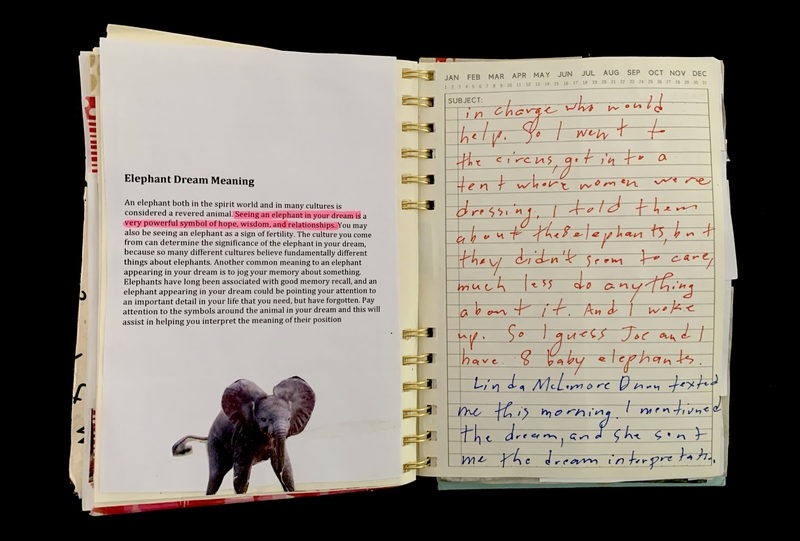 Elephant Dream Meaning
An elephant both in the spirit world and in many cultures is
considered a revered animal. Seeing an elephant in your dream is a
very powerful symbol of hope, wisdom, and relationships. You may
also be seeing an elephant as a sign of fertility. The culture you come
from can determine the significance of the elephant in your dream,
because so many different cultures believe fundamentally different
things about elephants. Another common meaning to an elephant
appearing in your dream is to jog your memory about something.
Elephants have long been associated with good memory recall, and an
elephant appearing in your dream could be pointing your attention to
an important detail in your life that you need, but have forgotten. Pay
attention to the symbols around the animal in your dream and this will
assist in helping you interpret the meaning of their position
JAN FEB MAR APR MAY JUN JUL AUG SEP OCT NOV DEC
SUBJECT:
in charge who would
help. So I went to
the circus, got in to a
tent where women were
dressing. I told them
about the 8 elephants, but
they didn't seem to care,
much less do anything
about it. And I woke
up. So I guess Joe and I
have 8 baby elephants.
Linda McLemore texted
me this morning. I mentioned
the dream, and she sent
me the dream